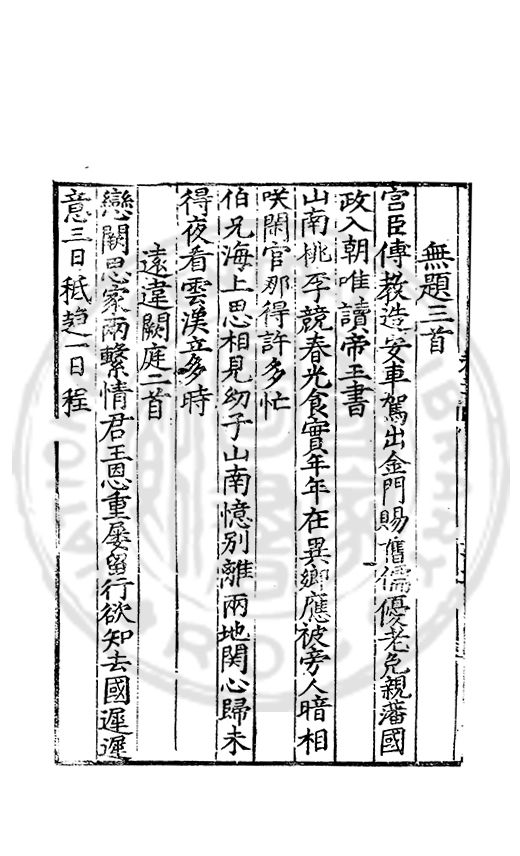 無題三首
宮臣傳教造安車駕出金門賜舊儒優老免親藩國
政入朝唯讀帝王書
山南桃李競春光食實年年在異鄉應被旁人暗相
咲閑官那得許多忙
伯兄海上思相見幼子山南憶別離兩地関心歸未
得夜看雲漢立多時
遠違闕庭二首
戀闕思家兩繫情君王恩重屡留行欲知去國遲遲
意三日秪趍一日程